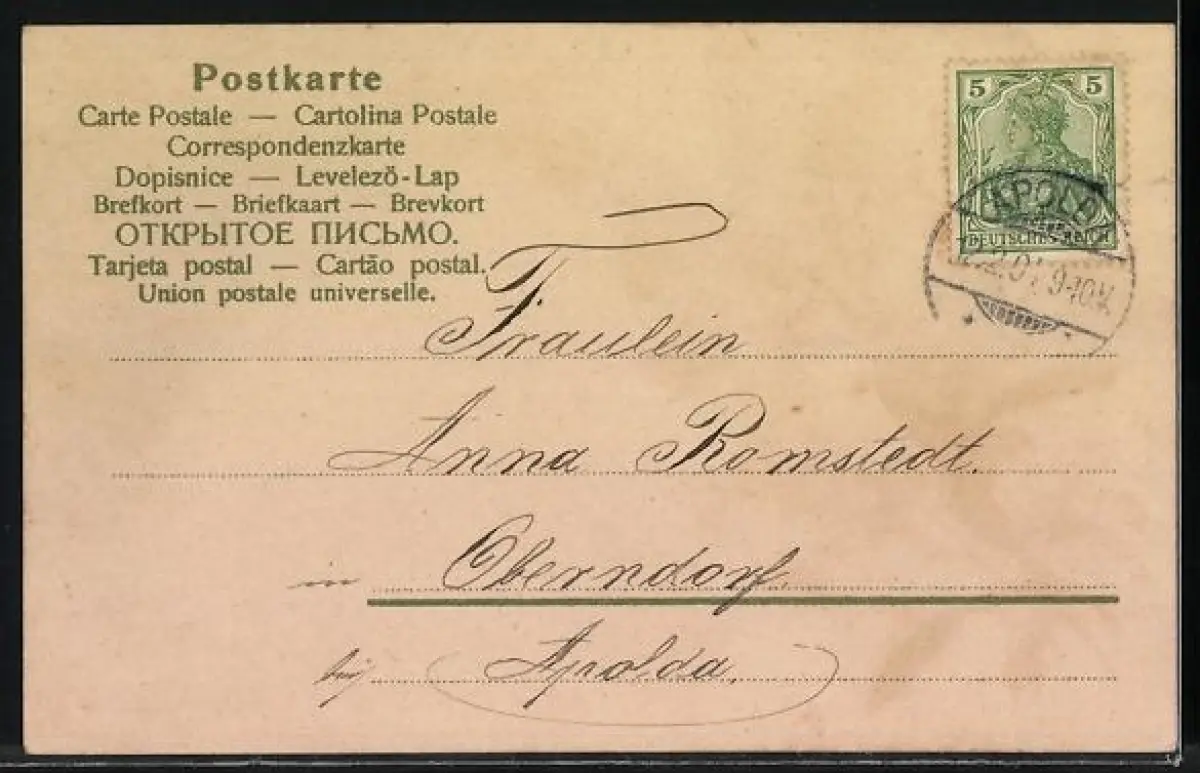 Postkarte
Carte Postale — Cartolina Postale
Correspondenzkarte
Dopisnice — Levelező-Lap
Brefkort — Briefkaart — Brevkort
ОТКРЫТОЕ ПИСЬМО.
Tarjeta postal — Cartão postal.
Union postale universelle.
5 5
DEUTSCHES REICH
APOLD
9-10V.
Fräulein
Anna Romstedt.
in Oberndorf
bei Apolda.